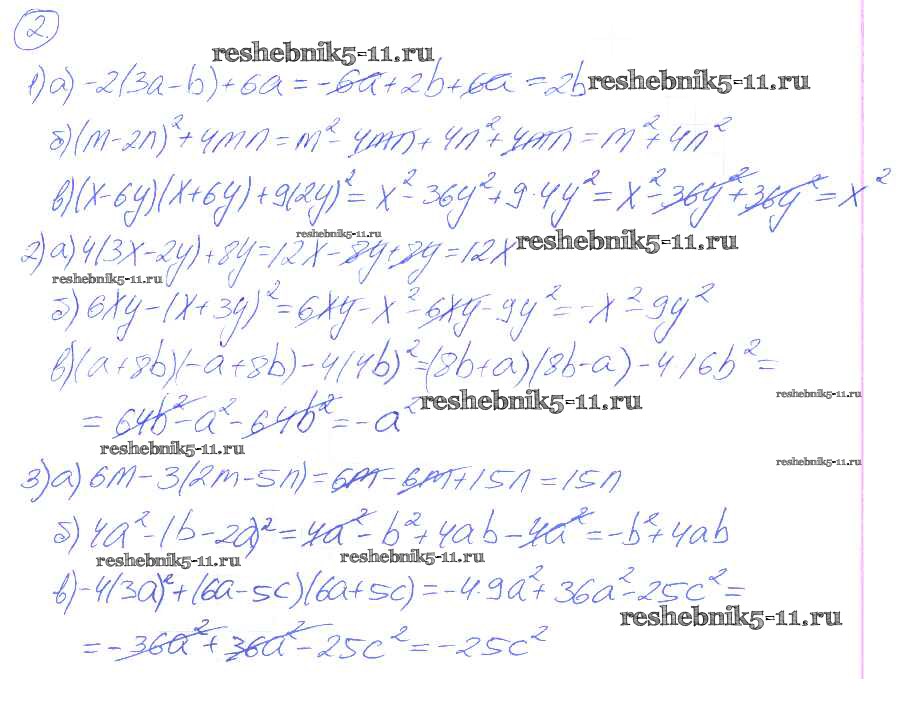 2.
reshebnik5-11.ru
1) а) -2(3a-b)+6a = -6a+2b+6a = 2b reshebnik5-11.ru
б) (m-2n)²+4mn = m²-4mn+4n²+4mn = m²+4n²
в) (x-6y)(x+6y)+9(2y)² = x²-36y²+9·4y² = x²-36y²+36y² = x²
reshebnik5-11.ru
2) а) 4(3x-2y)+8y = 12x-8y+8y = 12x reshebnik5-11.ru
reshebnik5-11.ru
б) 6xy-(x+3y)² = 6xy-x²-6xy-9y² = -x²-9y²
в) (a+8b)(-a+8b)-4(4b)² = (8b+a)(8b-a)-4·16b² =
reshebnik5-11.ru
= 64b²-a²-64b² = -a² reshebnik5-11.ru
reshebnik5-11.ru
reshebnik5-11.ru
3) а) 6m-3(2m-5n) = 6m-6m+15n = 15n
б) 4a²-(b-2a)² = 4a²-b²+4ab-4a² = -b²+4ab
reshebnik5-11.ru reshebnik5-11.ru
в) -4(3a)²+(6a-5c)(6a+5c) = -4·9a²+36a²-25c² =
reshebnik5-11.ru
= -36a²+36a²-25c² = -25c²